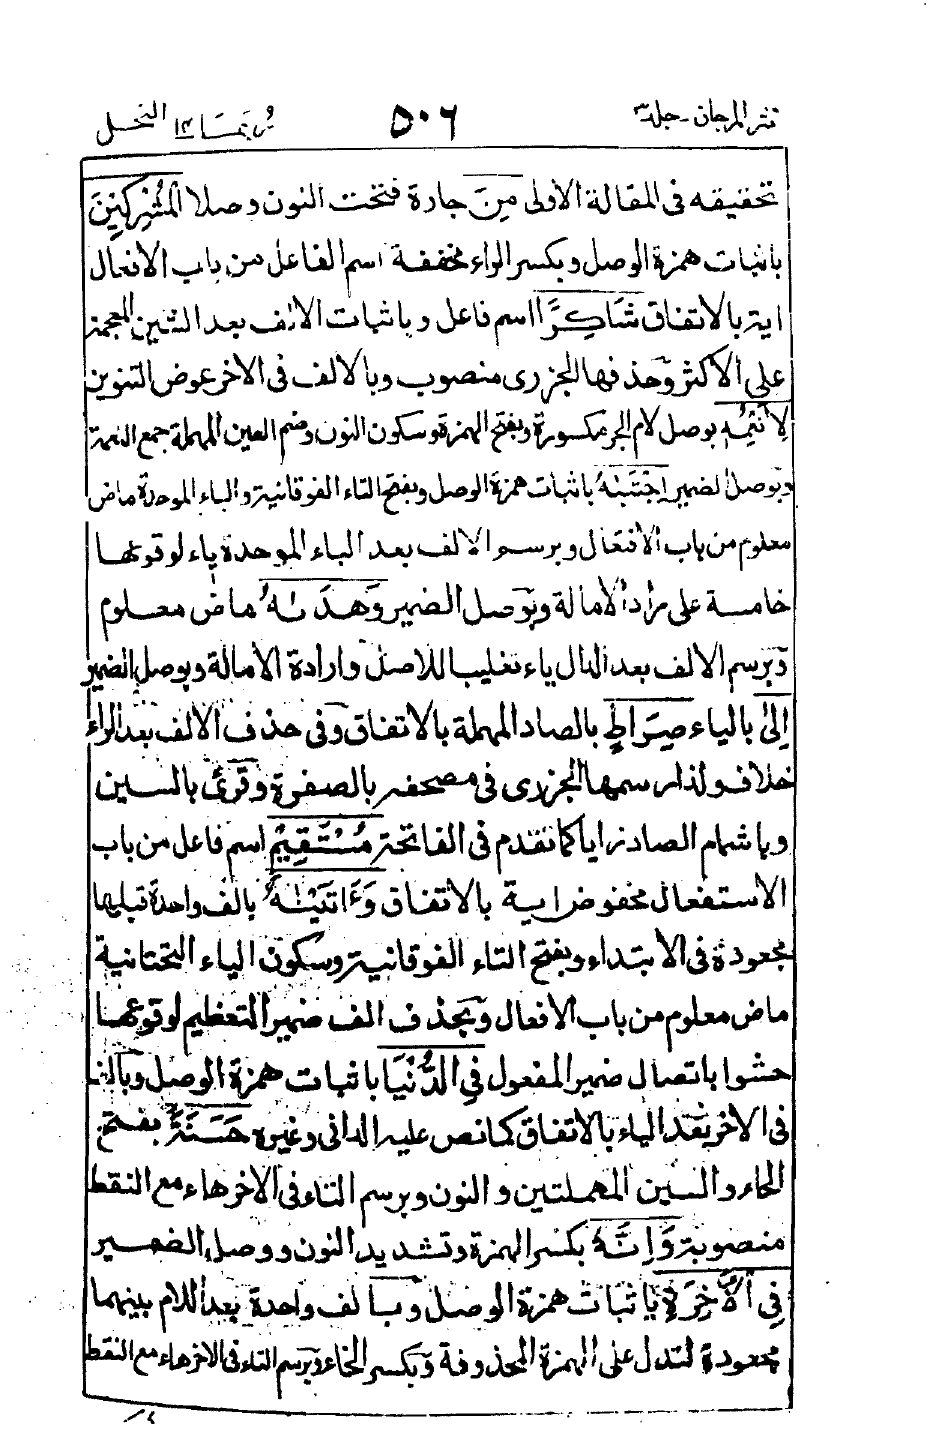 نثر المرجان - جلد ٣ ٥٠٦ ربما ١٤ النحل
تحقيقه فى المقالة الأولى مِنَ جارة فتحت النون وصلا الْمُشْرِكِيْنَ
باثبات همزة الوصل وبكسر الراء مخففة اسم الفاعل من باب الافعال
اية بالاتفاق شَاكِرًا اسم فاعل وباثبات الالف بعد الشين المعجمة
على الاكثر وحذفها الجزرى منصوب وبالالف فى الاخر عوض التنوين
لِاَنْعُمِهٖ بوصل لام الجر مكسورة وبفتح الهمزة وسكون النون وضم العين المهملة جمع النعمة
وبوصل الضمير اِجْتَبٰىهُ باثبات همزة الوصل وبفتح التاء الفوقانية والباء الموحدة ماض
معلوم من باب الافتعال وبرسم الالف بعد الباء الموحدة ياء لوقوعها
خامسة على مراد الامالة وبوصل الضمير وَهَدٰىهُ ماض معلوم
وبرسم الالف بعد الدال ياء تغليبا للاصل وارادة الامالة وبوصل الضمير
اِلٰى بالياء صِرَاطٍ بالصاد المهملة بالاتفاق وفى حذف الالف بعد الراء
خلاف ولذا رسمها الجزرى فى مصحفه بالصفرة وقرئ بالسين
وباشمام الصاد زايا كما تقدم فى الفاتحة مُسْتَقِيْمٍ اسم فاعل من باب
الاستفعال مخفوض اية بالاتفاق وَءَاتَيْنٰهُ بالف واحدة قبلها
مجعودة فى الابتداء وبفتح التاء الفوقانية وسكون الياء التحتانية
ماض معلوم من باب الافعال وبحذف الف ضمير التعظيم لوقوعها
حشوا باتصال ضمير المفعول فِى الدُّنْيَا باثبات همزة الوصل وبالف
فى الاخر بعد الياء بالاتفاق كما نص عليه الدانى وغيره حَسَنَةً بفتح
الحاء والسين المهملتين والنون وبرسم التاء فى الاخر هاء مع النقط
منصوبة وَاِنَّهٗ بكسر الهمزة وتشديد النون ووصل الضمير
فِى الْاٰخِرَةِ باثبات همزة الوصل وبالف واحدة بعد اللام بينهما
مجعودة لتدل على الهمزة المحذوفة وبكسر الخاء وبرسم التاء فى الاخر هاء مع النقط